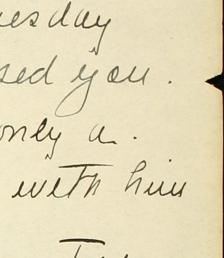 esday
sed you.
oney a.
with him